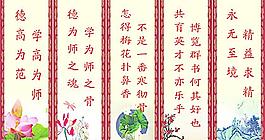 精益求精
永无至境
博览群书何其好也
共育英才不亦乐乎
不是一番寒彻骨
怎得梅花扑鼻香
学为师之骨
德为师之魂
学高为师
德高为范